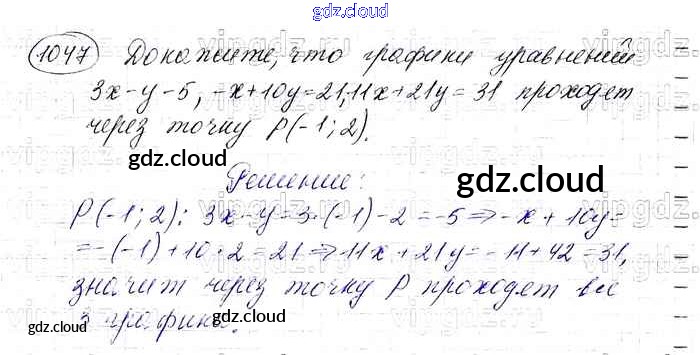 gdz.cloud
1047 Докажите, что графики уравнений
3x-y-5, -x+10y=21, 11x+21y=31 проходят
через точку P(-1; 2).
gdz.cloud
Решение:
gdz.cloud
P(-1; 2): 3x-y=3·(-1)-2=-5⇒-x+10y=
=-(-1)+10·2=21⇒11x+21y=-11+42=31,
gdz.cloud
значит через точку P проходят все
gdz.cloud
3 графика.
gdz.cloud
gdz.cloud